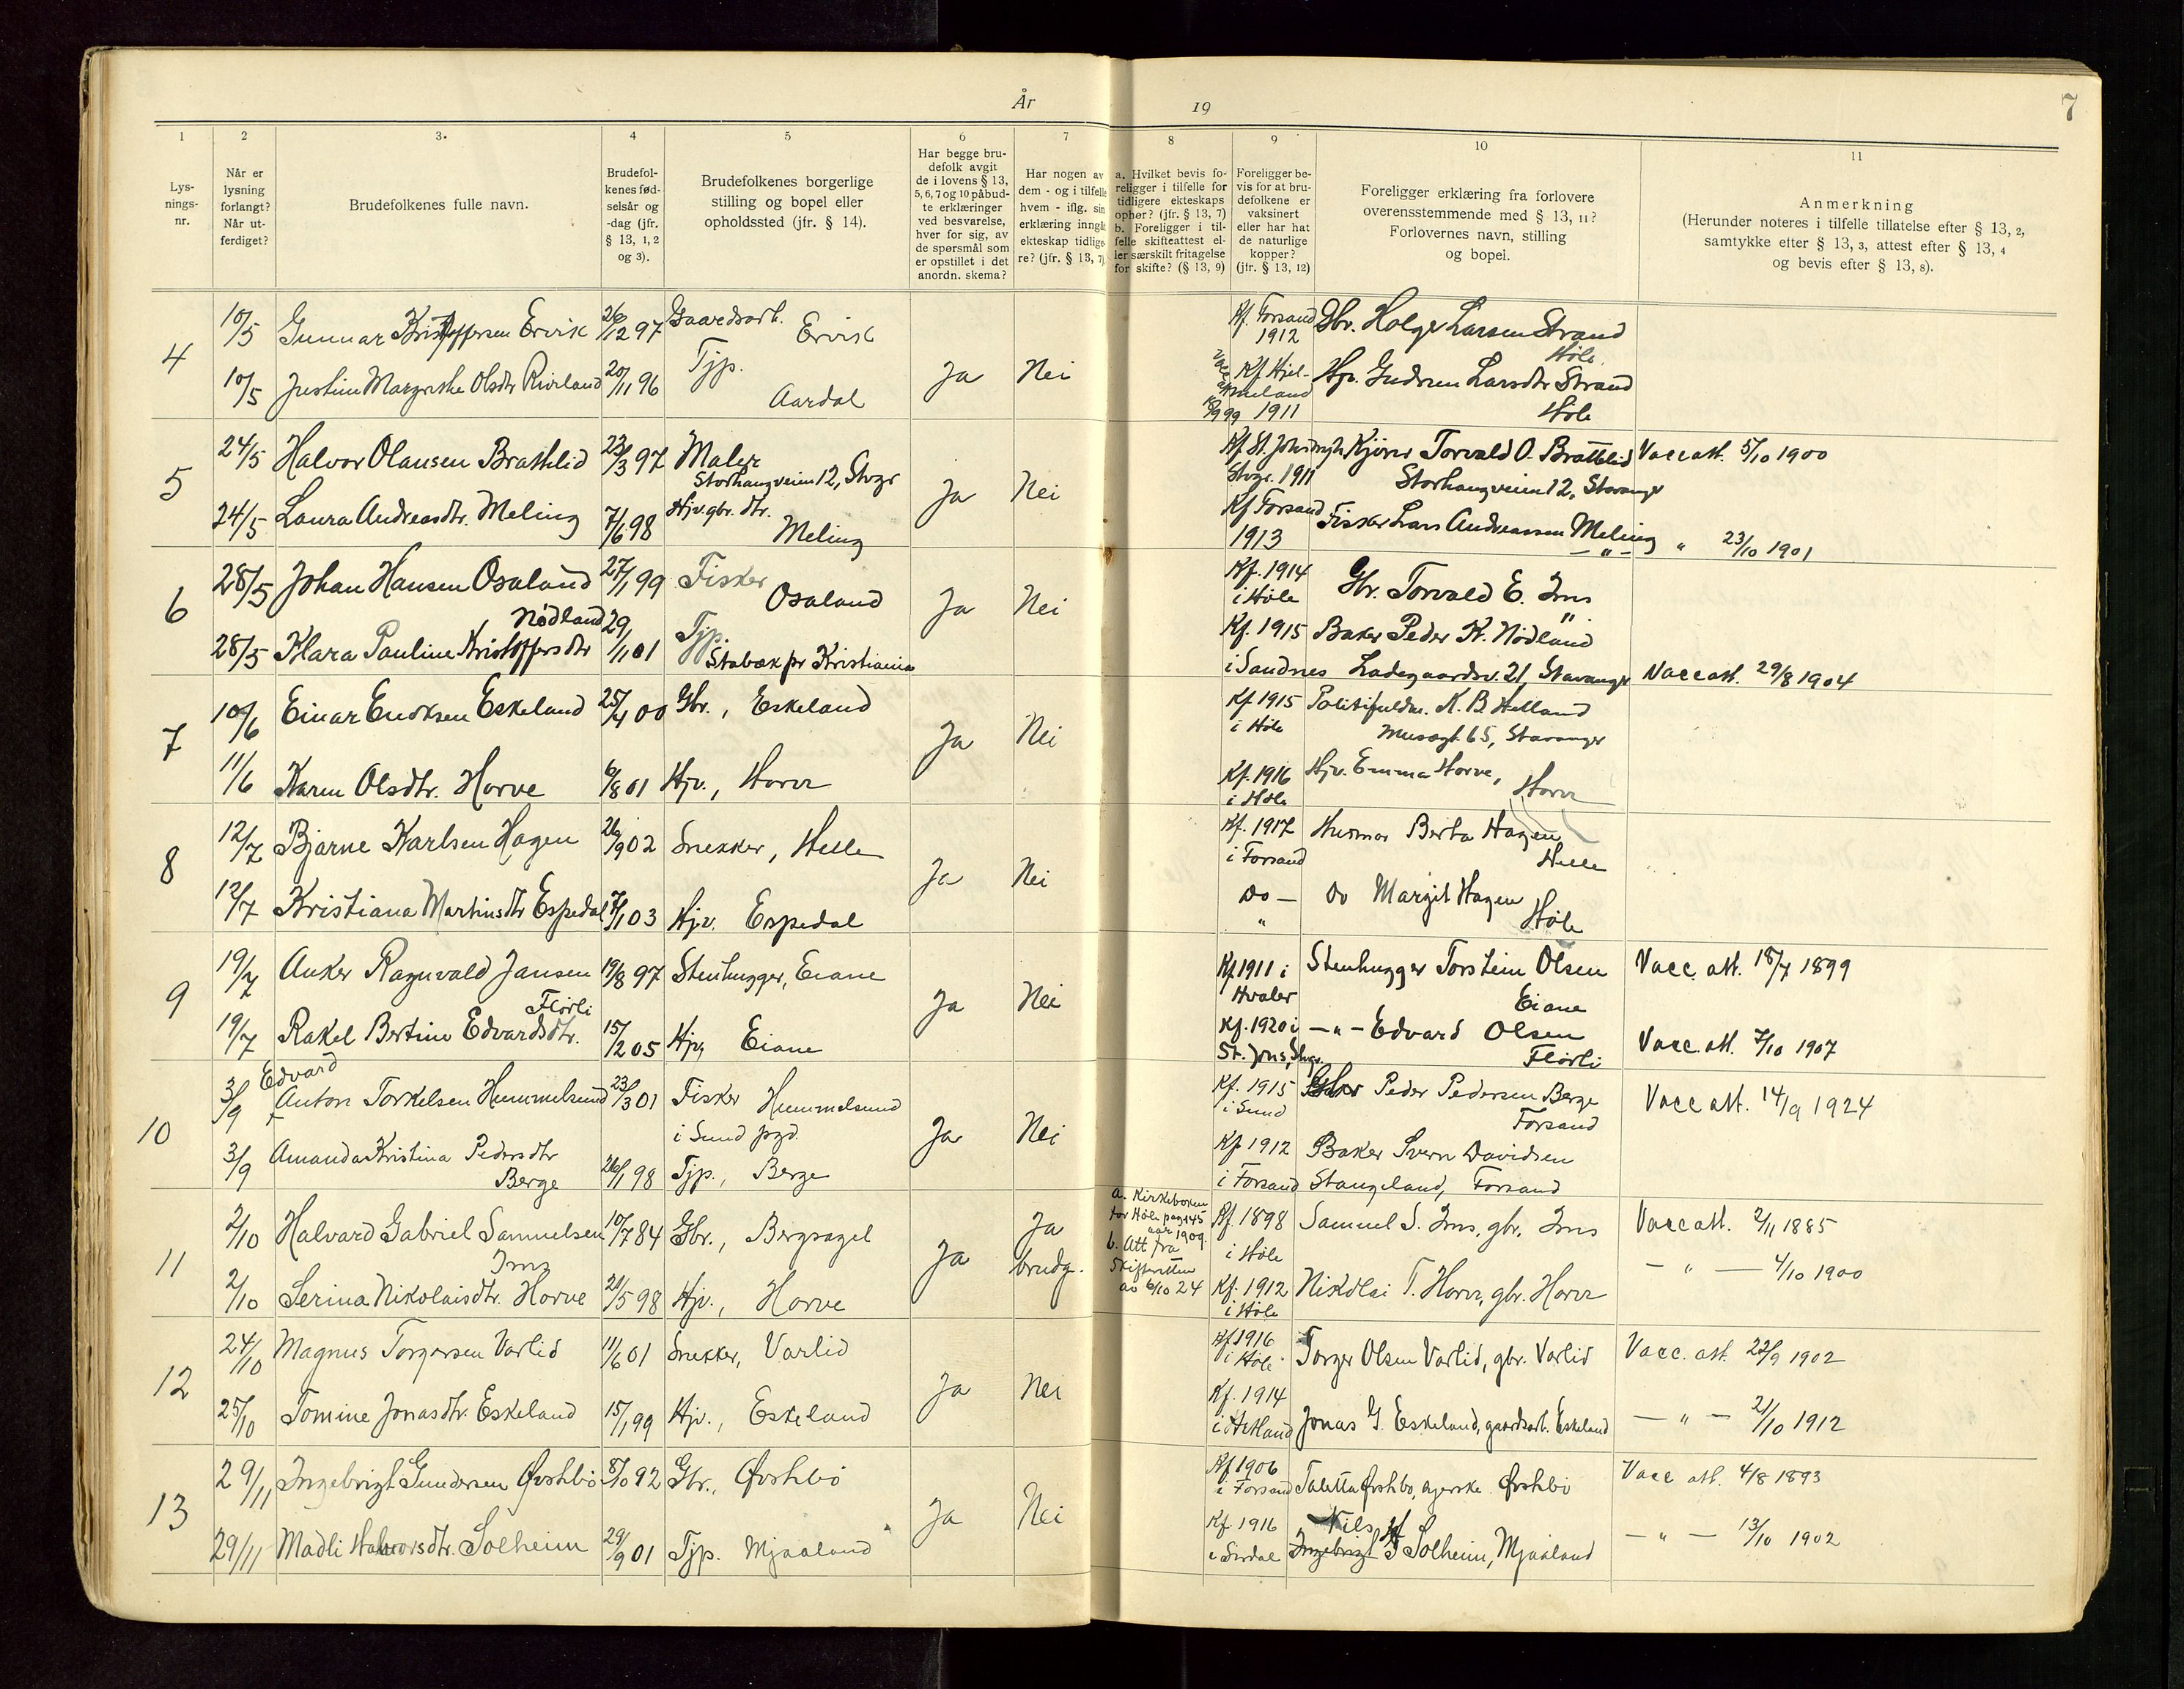 År
19
7
1
Lys-
nings-
nr.
2
Når er
lysning
forlangt?
Når ut-
ferdiget?
3.
Brudefolkenes fulle navn.
4
Brudefol-
kenes fød-
selsår og
-dag (jfr.
§ 13, 1, 2
og 3).
5
Brudefolkenes borgerlige
stilling og bopel eller
opholdssted (jfr. § 14).
6
Har begge bru-
defolk avgit
de i lovens § 13,
5, 6, 7 og 10 påbud-
te erklæringer
ved besvarelse,
hver for sig, av
de spørsmål som
er opstillet i det
anordn. skema?
7
Har nogen av
dem - og i tilfelle
hvem - iflg. sin
erklæring inngåt
ekteskap tidlige-
re? (jfr. § 13, 7).
8
a. Hvilket bevis fo-
religger i tilfelle for
tidligere ekteskaps
ophør? (jfr. § 13, 7)
b. Foreligger i til-
felle skifteattest el-
ler særskilt fritagelse
for skifte? (§ 13, 9)
9
Foreligger be-
vis for at bru-
defolkene er
vaksinert
eller har hat
de naturlige
kopper?
(jfr. § 13, 12)
10
Foreligger erklæring fra forlovere
overensstemmende med § 13, 11?
Forlovernes navn, stilling
og bopel.
11
Anmerkning
(Herunder noteres i tilfelle tillatelse efter § 13, 2,
samtykke efter § 13, 3, attest efter § 13, 4
og bevis efter § 13, 8).
4
10/5 Gunnar Kristoffersen Ervik 26/12 97 Gaardsarb. Ervik
Kf. Forsand 1912 Gbr. Holger Larsen Strand Høle
10/5 Justine Margrethe Olsdtr Riveland 20/11 96 Tjp. Aardal Ja Nei
Kf Hjel-
meland 1911 Hjv. Gudrun Larsdtr Strand Høle
5
24/5 Halvor Olausen Brathlid 23/3 97 Maler
Storhaugveien 12, Stvgr Ja Nei
Stvgr. 1911 Kjører Torvald O. Brattlid
Storhaugveien 12, Stavanger
Vacc att. 5/10 1900
24/5 Laura Andreasdtr. Meling 7/6 98 Hjv. gbr. dtr.
Meling
Kf Forsand 1913 Fisker Lars Andreassen Meling
" 23/10 1901
6
28/5 Johan Hansen Osaland 27/1 99 Fisker Osaland Ja Nei
Kf. 1914 i Høle Gbr. Torvald E. Ims
Nødland
28/5 Klara Pauline Kristoffersdtr 29/1 01 Tjp.
Stabæk pr Kristiania
Kf. 1915 i Sandnes Baker Peder K. Nødland
Ladegaardsv. 21, Stavanger
Vacc att. 29/8 1904
7
10/6 Einar Endresen Eskeland 25/4 00 Gbr., Eskeland Ja Nei
Kf 1915 i Høle Politifuldm. K. B. Helland
Musægt. 65, Stavanger
11/6 Karen Olsdtr. Horve 6/8 01 Hjv., Horve
Kf. 1916 i Høle Hjv. Emma Horve, Horve
8
12/7 Bjarne Karlsen Hagen 26/9 02 Snekker, Helle Ja Nei
Kf. 1917 i Forsand Husmor Berta Hagen Helle
12/7 Kristiana Martinsdtr Espedal 7/1 03 Hjv. Espedal
Do — Do Margit Hagen Høle
9
19/7 Anker Ragnvald Jansen 19/8 97 Stenhugger, Eiane Ja Nei
Kf 1911 i Hvaler Stenhugger Torstein Olsen Eiane
Vacc. att. 18/7 1899
Flørli
19/7 Rakel Bertine Edvardsdtr. 15/2 05 Hjv, Eiane
Kf. 1920 i St. Johs, Stvgr. — " — Edvard Olsen Flørli
Vacc. att. 7/10 1907
10
Edvard
3/9 Anton Torkelsen Hummelsund 23/3 01 Fisker Hummelsund
i Sund pgd. Ja Nei
Kf. 1915 i Sund Peder Pedersen Berge Forsand
Vacc att. 14/9 1924
3/9 Amanda Kristina Pedersdtr Berge 26/1 98 Tjp., Berge
Kf. 1912 i Forsand Baker Svern Davidsen
Stangeland, Forsand
11
2/10 Halvard Gabriel Samuelsen Ims 10/7 84 Gbr., Bergsagel Ja Ja brudg.
a. Kirkeboken
for Høle pag 145
aar 1909.
b. Att fra
Skifteretten
av 6/10 24
Kf. 1898 i Høle Samuel S. Ims, gbr. Ims
Vacc att. 2/11 1885
2/10 Serina Nikolaisdtr. Horve 21/5 98 Hjv., Horve
Kf. 1912 i Høle Nikolai T. Horve, gbr. Horve
— " — 4/10 1900
12
24/10 Magnus Torgersen Varlid 11/6 01 Snekker, Varlid Ja Nei
Kf 1916 i Høle Torger Olsen Varlid, gbr. Varlid
Vacc. att. 22/9 1902
25/10 Tomine Jonasdtr. Eskeland 15/1 99 Hjv., Eskeland
Kf. 1914 i Hetland Jonas G. Eskeland, gaardsarb. Eskeland
— " — 21/10 1912
13
29/11 Ingebrigt Gundersen Øvstebø 8/10 92 Gbr., Øvstebø Ja Nei
Kf 1906 i Forsand Taletta Øvstebø, Øvstebø
Vacc att. 4/8 1893
29/11 Madli Halvorsdtr. Solheim 29/9 01 Tjp. Mjaaland
Kf. 1916 i Sirdal Nils H
Ingebrigt Solheim, Mjaaland
— " — 13/10 1902